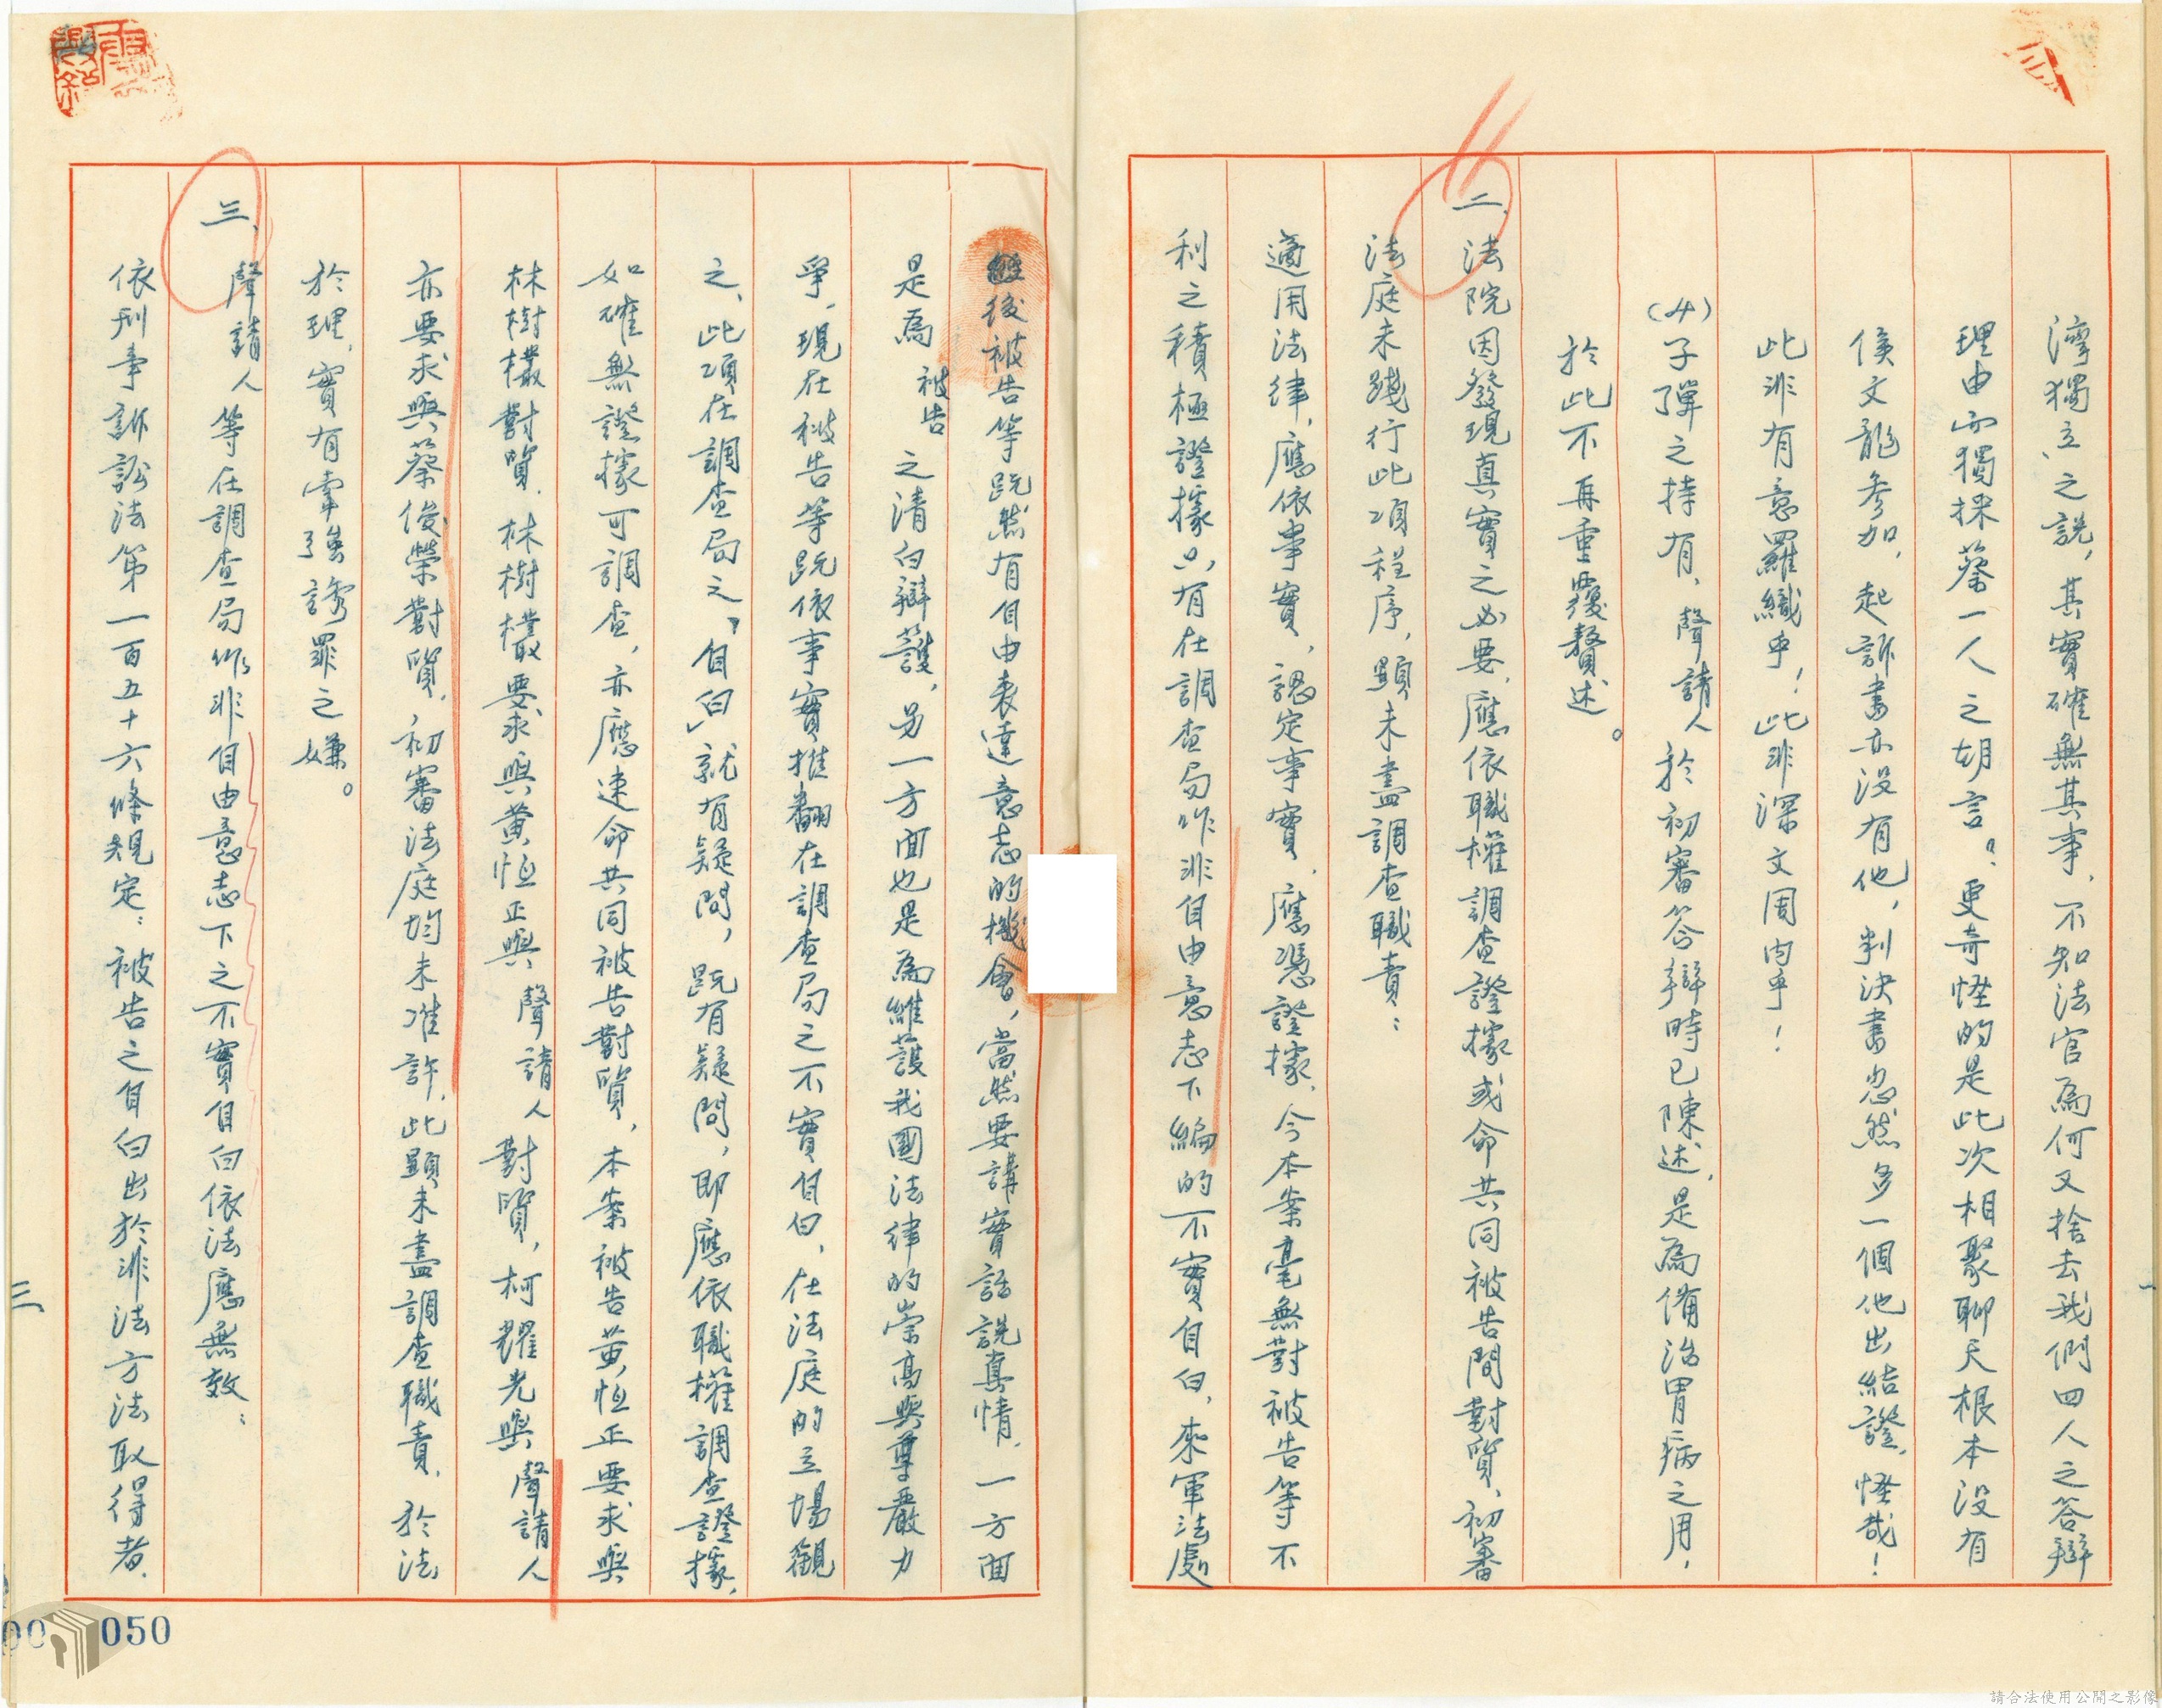 灣獨立」之說，其實確無其事，不知法官為何又捨去我們四人之答辯
理由而獨採蔡一人之胡言。更奇怪的是此次相聚聊天根本沒有
侯文龍參加，起訴書亦沒有他，判決書忽然多一個他出結證，怪哉！
此非有意羅織乎！此非深文周內乎！
(4)子彈之持有，聲請人於初審答辯時已陳述，是為備治胃病之用，
於此不再重覆贅述。
二、法院因發現真實之必要，應依職權調查證據或命共同被告間對質，初審
法庭未踐行此項程序，顯未盡調查職責：
適用法律，應依事實，認定事實，應憑證據，今本案毫無對被告等不
利之積極證據，只有在調查局作非自由意志下編的不實自白，來軍法處
後被告等既然有自由表達意志的機會，當然要講實話說真情，一方面
是為被告之清白辯護，另一方面也是為維護我國法律的崇高與尊嚴力
爭，現在被告等既依事實推翻在調查局之不實自白，在法庭的立場觀
之，此項在調查局之「自白」就有疑問，既有疑問，即應依職權調查證據，
如確無證據可調查，亦應速命共同被告對質，本案被告黃恒正要求與
林樹欉對質，林樹欉要求與黃恒正與聲請人對質，柯耀光與聲請人
亦要求與蔡俊榮對質，初審法庭均未准許，此顯未盡調查職責，於法
於理，實有牽強誘罪之嫌。
三、聲請人等在調查局作非自由意志下之不實自白依法應無效：
依刑事訴訟法第一百五十六條規定：被告之自白出於非法方法取得者，
三
050
請合法使用公開之影像